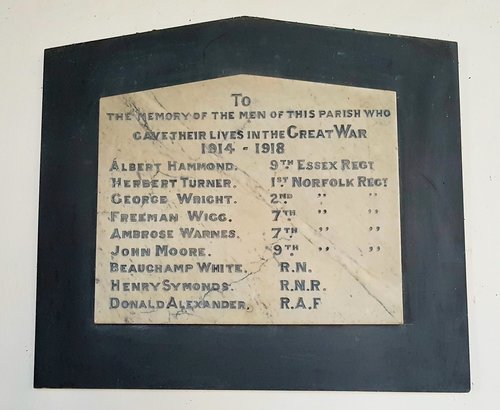 To
THE MEMORY OF THE MEN OF THIS PARISH WHO
GAVE THEIR LIVES IN THE GREAT WAR
1914 - 1918
ALBERT HAMMOND. 9TH ESSEX REGT
HERBERT TURNER. 1ST NORFOLK REGT
GEORGE WRIGHT. 2ND " "
FREEMAN WIGG. 7TH " "
AMBROSE WARNES. 7TH " "
JOHN MOORE. 9TH " "
BEAUCHAMP WHITE. R.N.
HENRY SYMONDS. R.N.R.
DONALD ALEXANDER. R.A.F